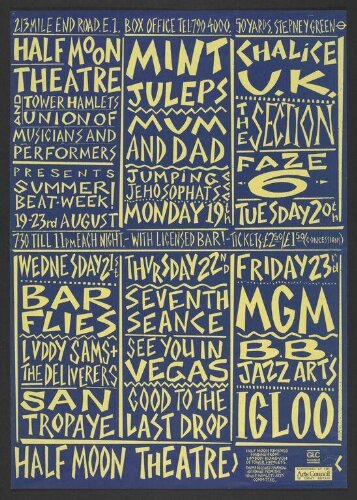 213 MILE END ROAD. E.1. BOX OFFICE TEL: 790 4000. 50 YARDS. STEPNEY GREEN
HALF MOON
THEATRE
AND
TOWER HAMLETS
UNION OF
MUSICIANS AND
PERFORMERS
PRESENTS
SUMMER
BEAT-WEEK!
19-23rd AUGUST
MINT
JULEPS
MUM
AND DAD
JUMPING
JEHOSOPHATS
MONDAY 19th
CHALICE
U.K.
THE SECTION
FAZE
6
TUESDAY 20th
7.30 TILL 11PM EACH NIGHT - WITH LICENSED BAR! - TICKETS £2.50/£1.50 (CONCESSIONS)
WEDNESDAY 21st
BAR
FLIES
LUDDY SAMS +
THE DELIVERERS
SAN
TROPAYE
THURSDAY 22ND
SEVENTH
SEANCE
SEE YOU IN
VEGAS
GOOD TO THE
LAST DROP
FRIDAY 23rd
MGM
B.B.
JAZZ ARTS
IGLOO
HALF MOON THEATRE
GLC
Arts Council